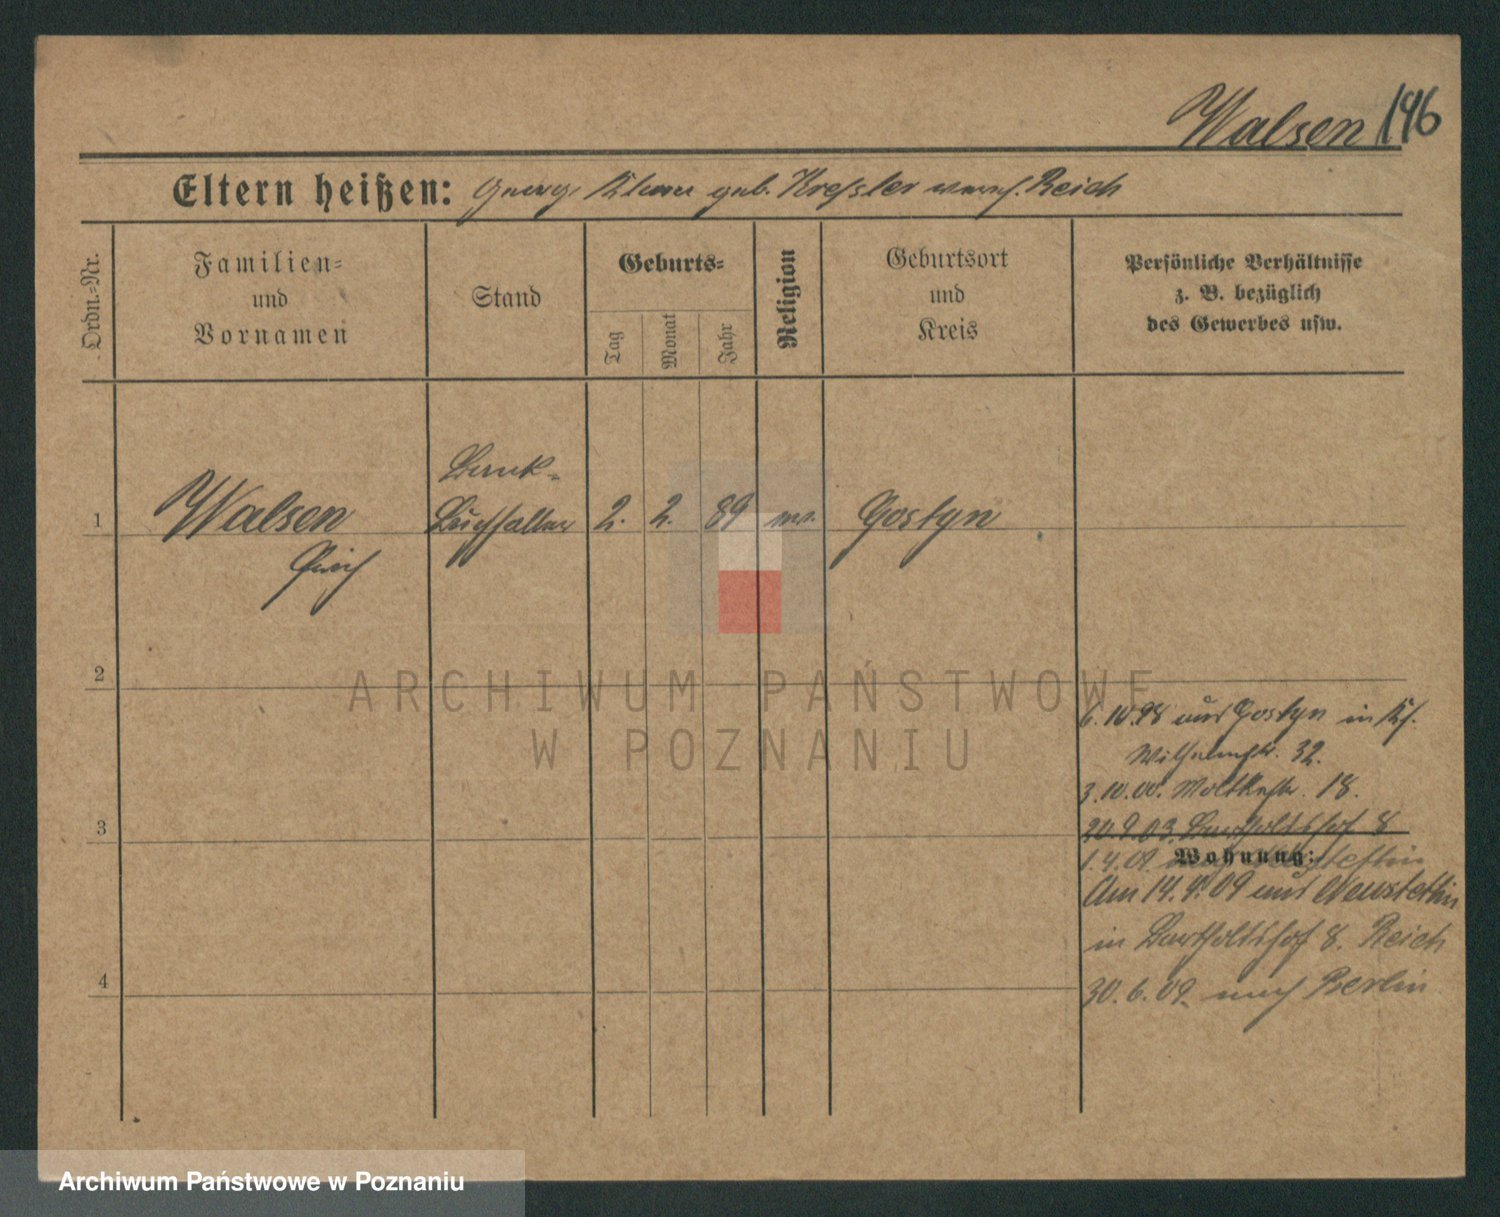 Walsen 146
Eltern heißen: Georg, geb. Kressler Reich
Ordn.=Nr.
Familien=
und
Vornamen
Stand
Geburts=
Tag
Monat
Jahr
Religion
Geburtsort
und
Kreis
Persönliche Verhältnisse
z. B. bezüglich
des Gewerbes usw.
Bank-
1 Walsen Buchhalter 2. 2. 89 Gostyn
Erich
2
6.10.98 aus Gostyn in
Wilhelmstr. 32.
3.10.00. Moltkestr. 18.
3 20.9.03. Bartholdshof 8
1.4.09 Neustettin
Wohnung:
Am 14.4.09 aus Neustettin
in Bartholdshof 8. Reich
4 30.6.09 nach Berlin
ARCHIWUM PAŃSTWOWE
W POZNANIU
Archiwum Państwowe w Poznaniu